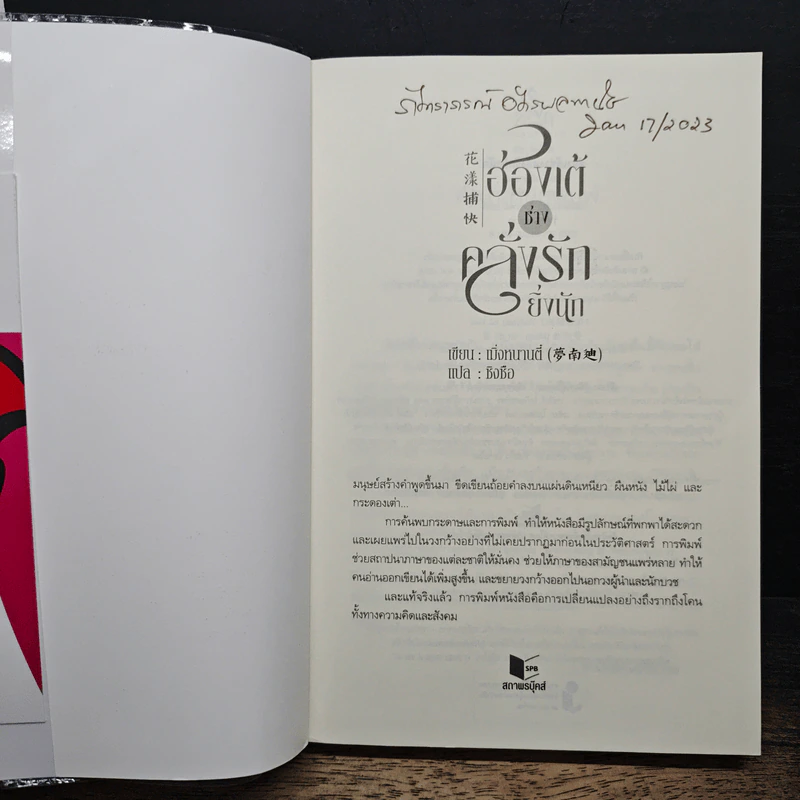 Jan 17/2023
花漾捕快
ฮ่องเต้
ช่าง
คลั่งรัก
ยิ่งนัก
เขียน : เมิ่งหนานตี๋ (夢南廸)
แปล : ชิงชือ
มนุษย์สร้างคำพูดขึ้นมา ขีดเขียนถ้อยคำลงบนแผ่นดินเหนียว ผืนหนัง ไม้ไผ่ และ
กระดองเต่า...
การค้นพบกระดาษและการพิมพ์ ทำให้หนังสือมีรูปลักษณ์ที่พกพาได้สะดวก
และเผยแพร่ไปในวงกว้างอย่างที่ไม่เคยปรากฏมาก่อนในประวัติศาสตร์ การพิมพ์
ช่วยสถาปนาภาษาของแต่ละชาติให้มั่นคง ช่วยให้ภาษาของสามัญชนแพร่หลาย ทำให้
คนอ่านออกเขียนได้เพิ่มสูงขึ้น และขยายวงกว้างออกไปนอกวงผู้นำและนักบวช
และแท้จริงแล้ว การพิมพ์หนังสือคือการเปลี่ยนแปลงอย่างถึงรากถึงโคน
ทั้งทางความคิดและสังคม
SPB
สถาพรบุ๊คส์